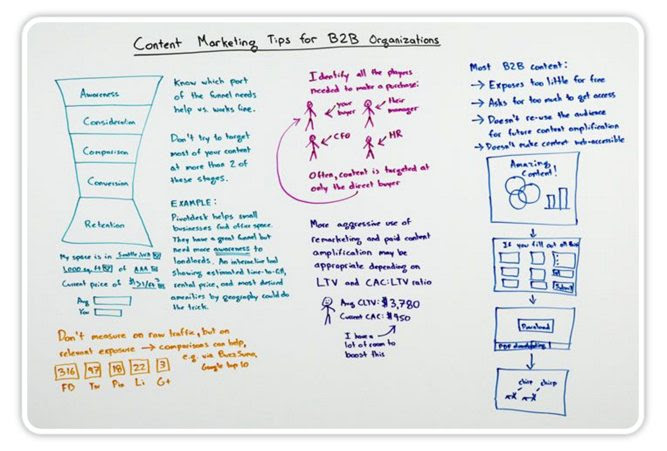 Content Marketing Tips for B2B Organizations
Awareness
Consideration
Comparison
Conversion
Retention
My space is in Seattle
1,000 sq. ft of AAA
Current price of $31/ft²
Avg
You
Know which part
of the funnel needs
help vs. works fine.
Don't try to target
most of your content
at more than 2 of
these stages.
EXAMPLE:
Pivotdesk helps small
businesses find office space.
They have a great funnel but
need more awareness to
landlords. An interactive tool
showing estimated time-to-fill,
rental price, and most desired
amenities by geography could do
the trick.
Don't measure on raw traffic, but on
relevant exposure → comparisons can help,
e.g. via BuzzSumo,
Google top 10
316 97 18 22 3
FB Tw Pin Li G+
Identify all the players
needed to make a purchase:
your buyer
their manager
CFO
HR
Often, content is targeted at
only the direct buyer
More aggressive use of
remarketing and paid content
amplification may be
appropriate depending on
LTV and CAC:LTV ratio
Avg CLTV: $3,780
Current CAC: $450
I have a
lot of room to
boost this
Most B2B content:
→ Exposes too little for free
→ Asks for too much to get access
→ Doesn't re-use the audience
for future content amplification
→ Doesn't make content web-accessible
Amazing
Content!
If you fill out all this
Submit
Download
PDF downloading
chirp chirp